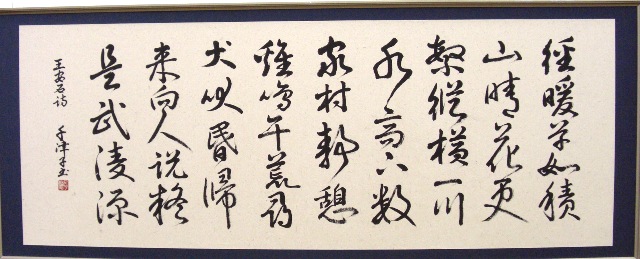 徑暖草如積
山晴花更
繁縱横一川
水高下数
家村静憩
雞鳴午荒尋
犬吠昏帰
来向人説疑
是武陵源
王安石詩
千津子